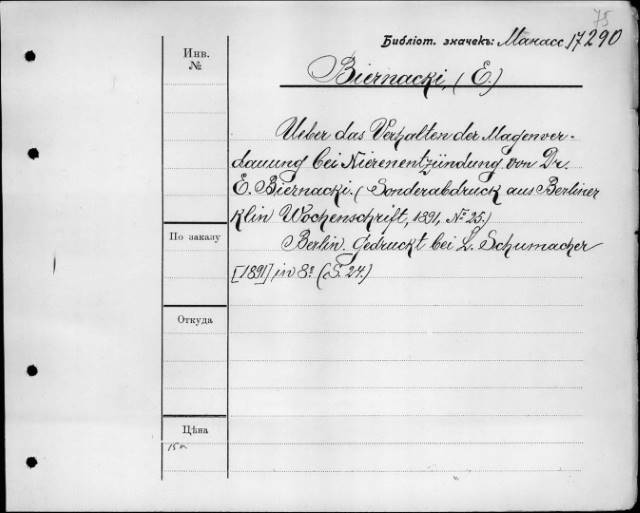 75
Инв.
№
Библіот. значекъ: Манасс. 17290
Biernacki, (E.)
Ueber das Verhalten der Magenver-
dauung bei Nierenentzündung von Dr.
E. Biernacki. (Sonderabdruck aus Berliner
klin Wochenschrift, 1891, № 25.)
По заказу
Berlin. Gedruckt bei L. Schumacher
[1891] in 8º. (S. 24.)
Откуда
Цѣна